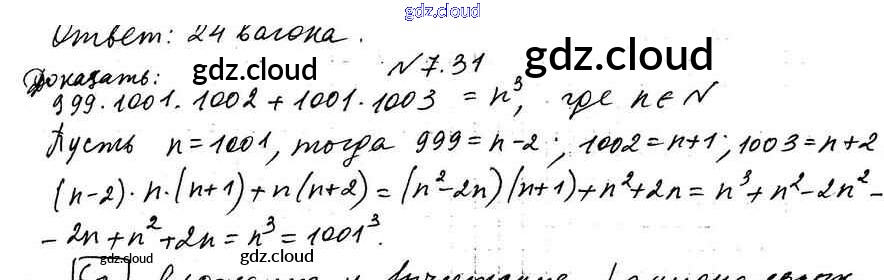 gdz.cloud
Ответ: 24 вагона.
gdz.cloud
gdz.cloud
№ 7.31
Доказать:
999·1001·1002 + 1001·1003 = n³, где n ∈ N
Пусть n = 1001, тогда 999 = n-2; 1002 = n+1; 1003 = n+2
(n-2)·n·(n+1) + n(n+2) = (n²-2n)(n+1) + n²+2n = n³+n²-2n²-
-2n+n²+2n = n³ = 1001³.
gdz.cloud
gdz.cloud